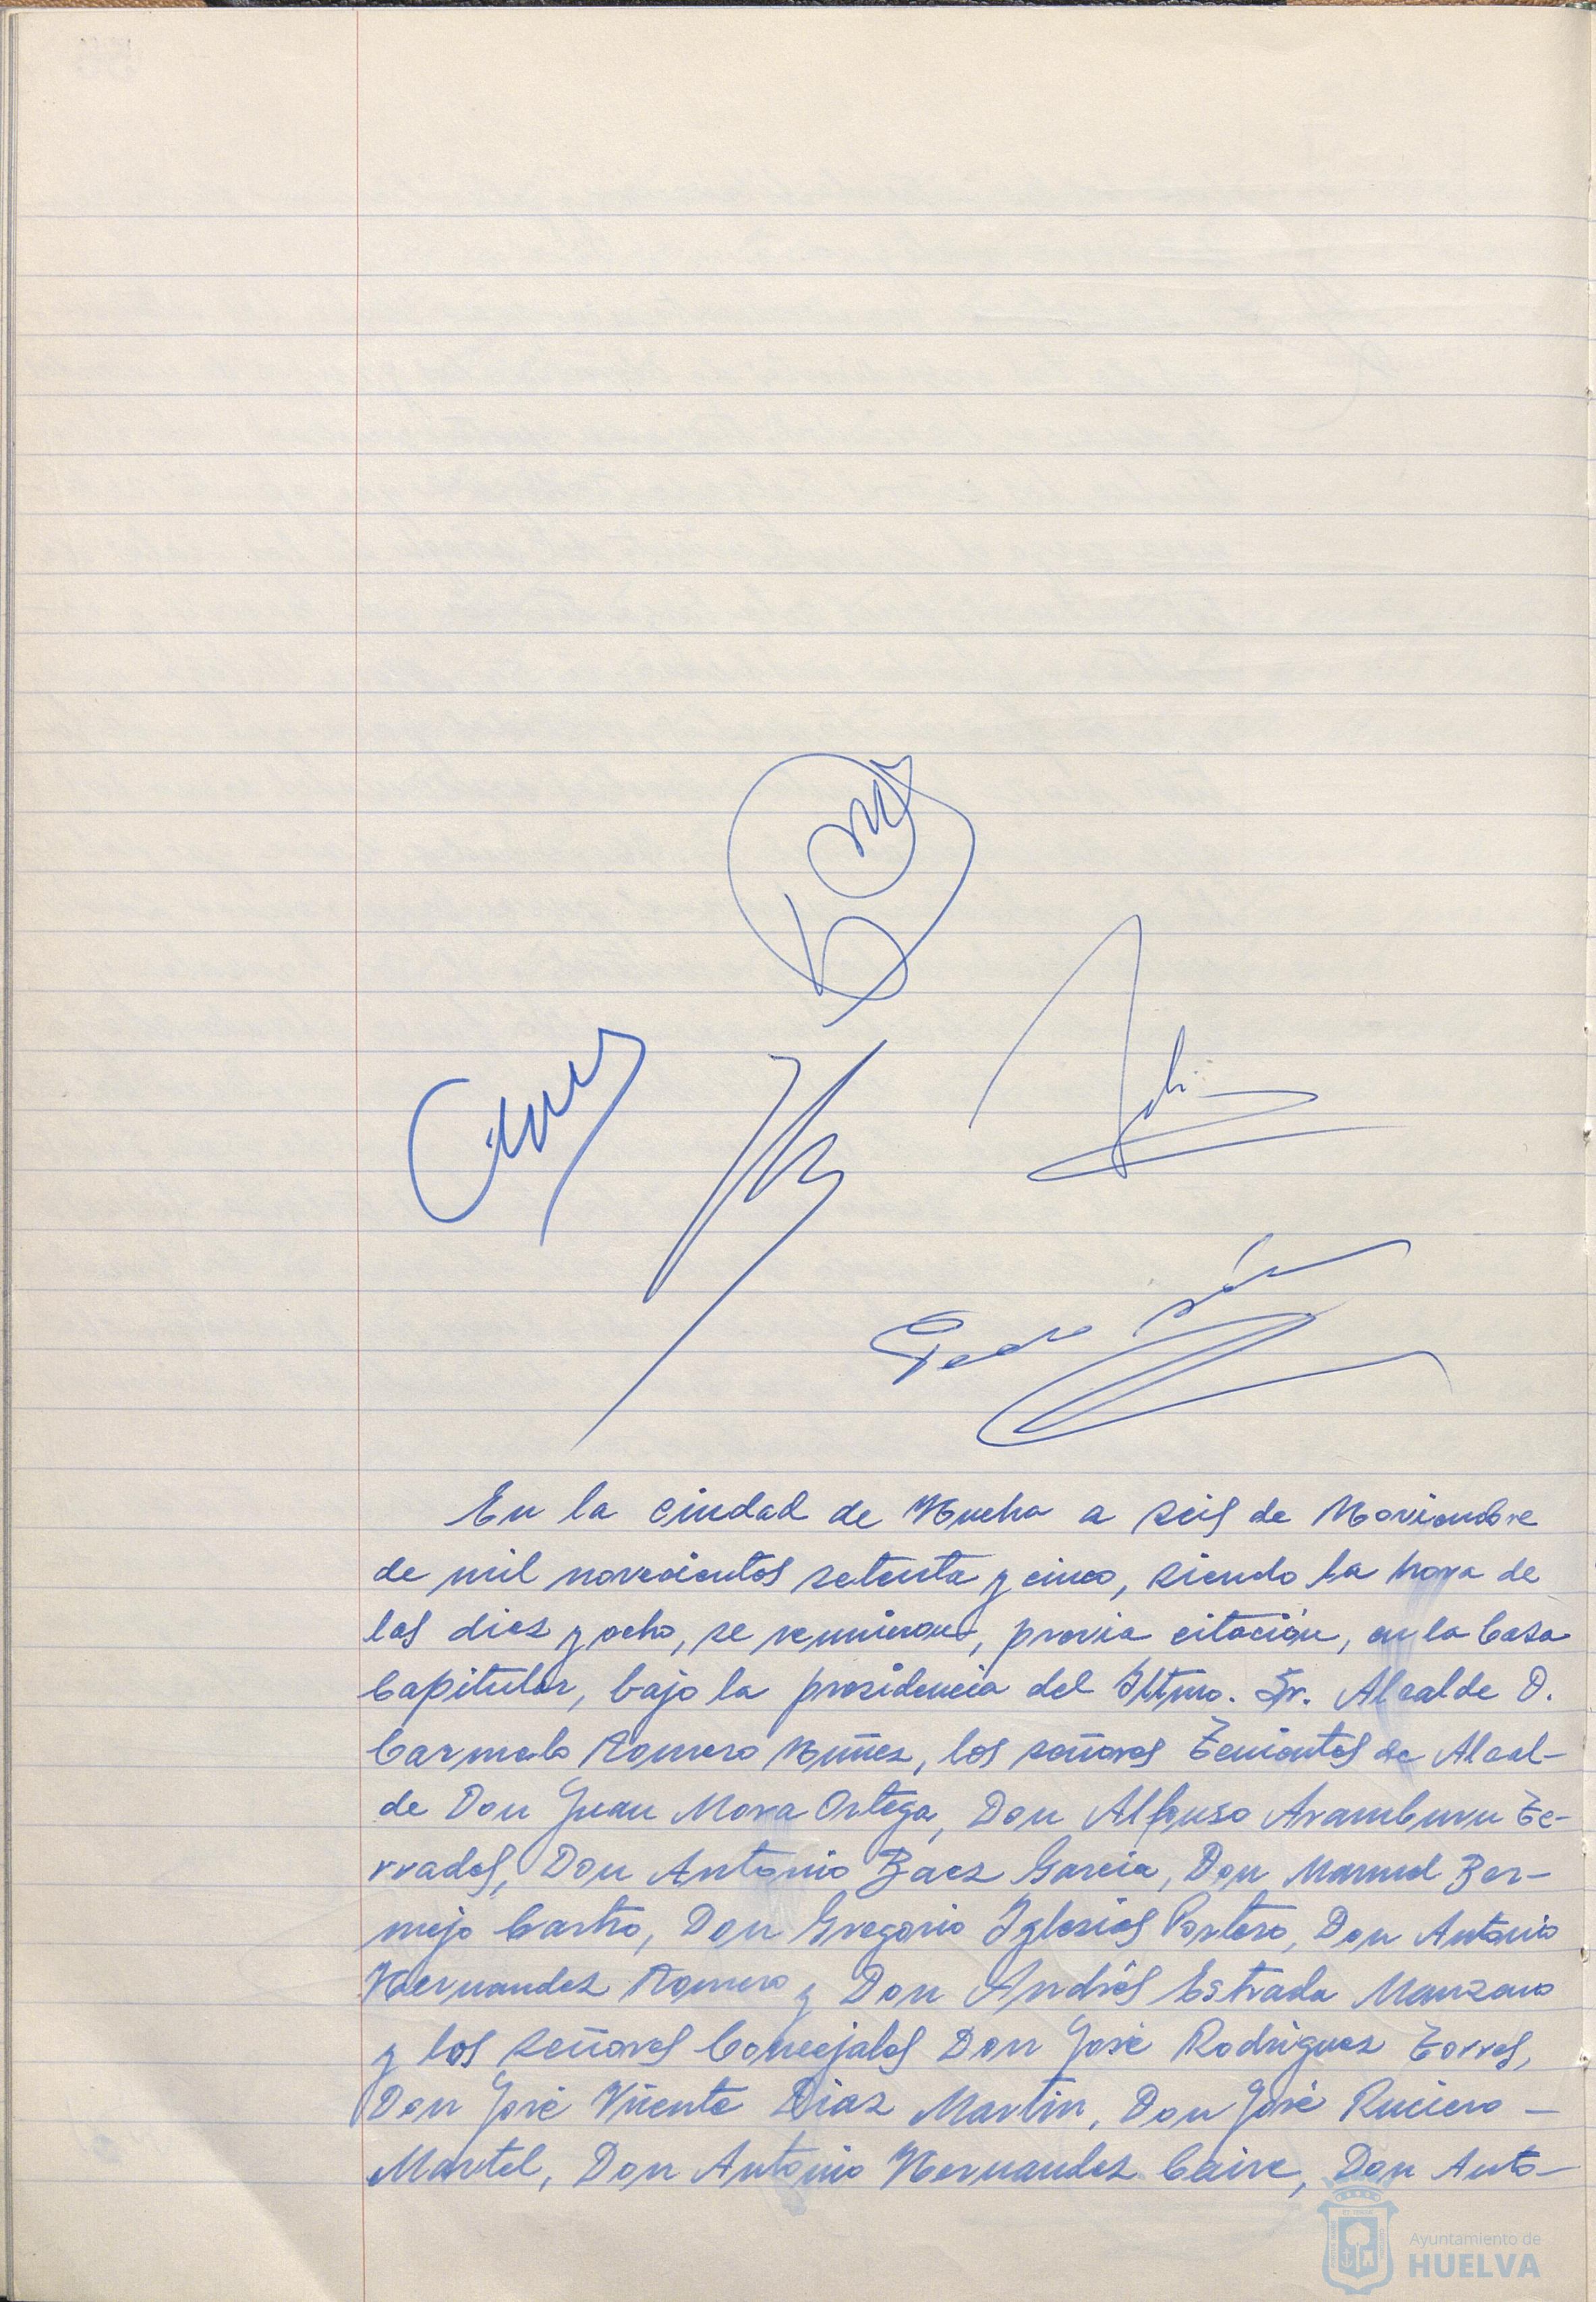 En la ciudad de Huelva a seis de Noviembre
de mil novecientos setenta y cinco, siendo la hora de
las diez y ocho, se reunieron, previa citación, en la Casa
Capitular, bajo la presidencia del Iltmo. Sr. Alcalde D.
Carmelo Romero Núñez, los señores Tenientes de Alcal-
de Don Juan Mora Ortega, Don Alfonso Aramburu Te-
rrades, Don Antonio Baez Garcia, Don Manuel Ber-
mejo Castro, Don Gregorio Iglesias Portero, Don Antonio
Hernandez Romero y Don Andrés Estrada Manzano
y los señores Concejales Don José Rodriguez Torres,
Don José Vicente Diaz Martin, Don José Ruciero -
Martel, Don Antonio Hernandez Caire, Don Anto-
Ayuntamiento de
HUELVA